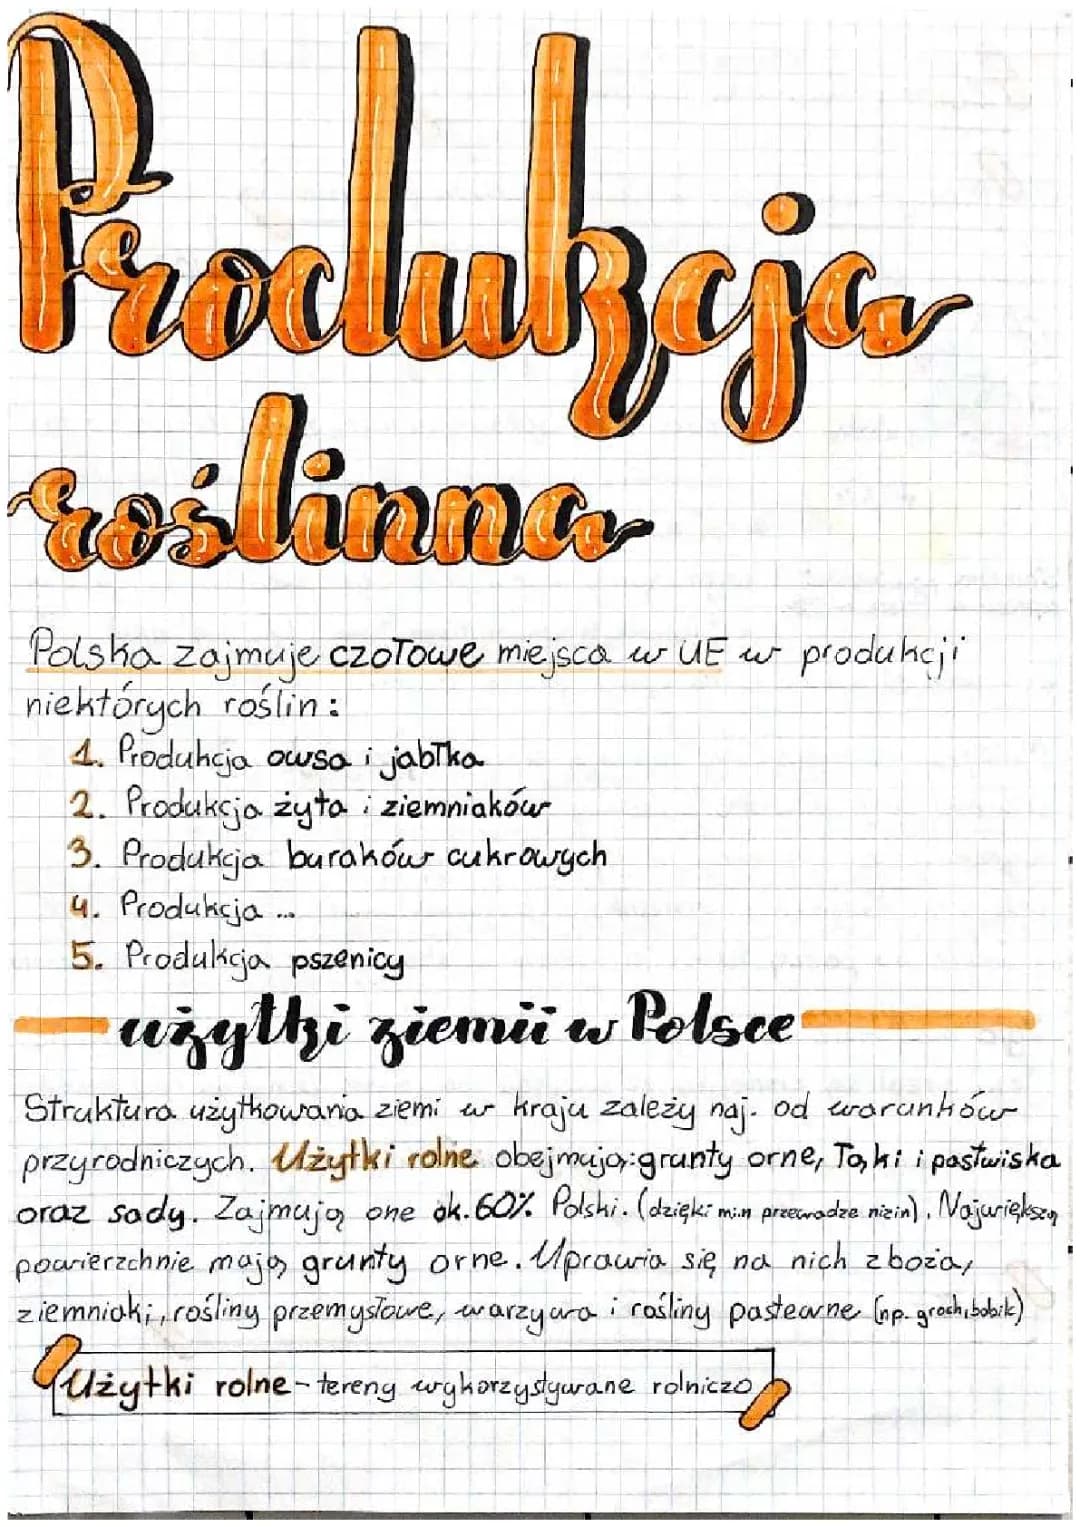 Produkcja
roślinna
Polska zajmuje czołowe miejsca w UE w produkcji
niektórych roślin:
1. Produkcja owsa i jabłka
2. Produkcja żyta i ziemniaków
3. Produkcja buraków cukrowych
4. Produkcja ...
5. Produkcja pszenicy
użytki ziemii w Polsce
Struktura użytkowania ziemi w kraju zależy naj. od warunków
przyrodniczych. Użytki rolne obejmują: grunty orne, łąki i pastwiska
oraz sady. Zajmują one ok. 60% Polski. (dzięki m.in przewadze nizin). Największą
powierzchnie mają grunty orne. Uprawia się na nich zboża,
ziemniaki, rośliny przemysłowe, warzywa i rośliny pastewne (np. groch, bobik)
Użytki rolne - tereny wykorzystywane rolniczo